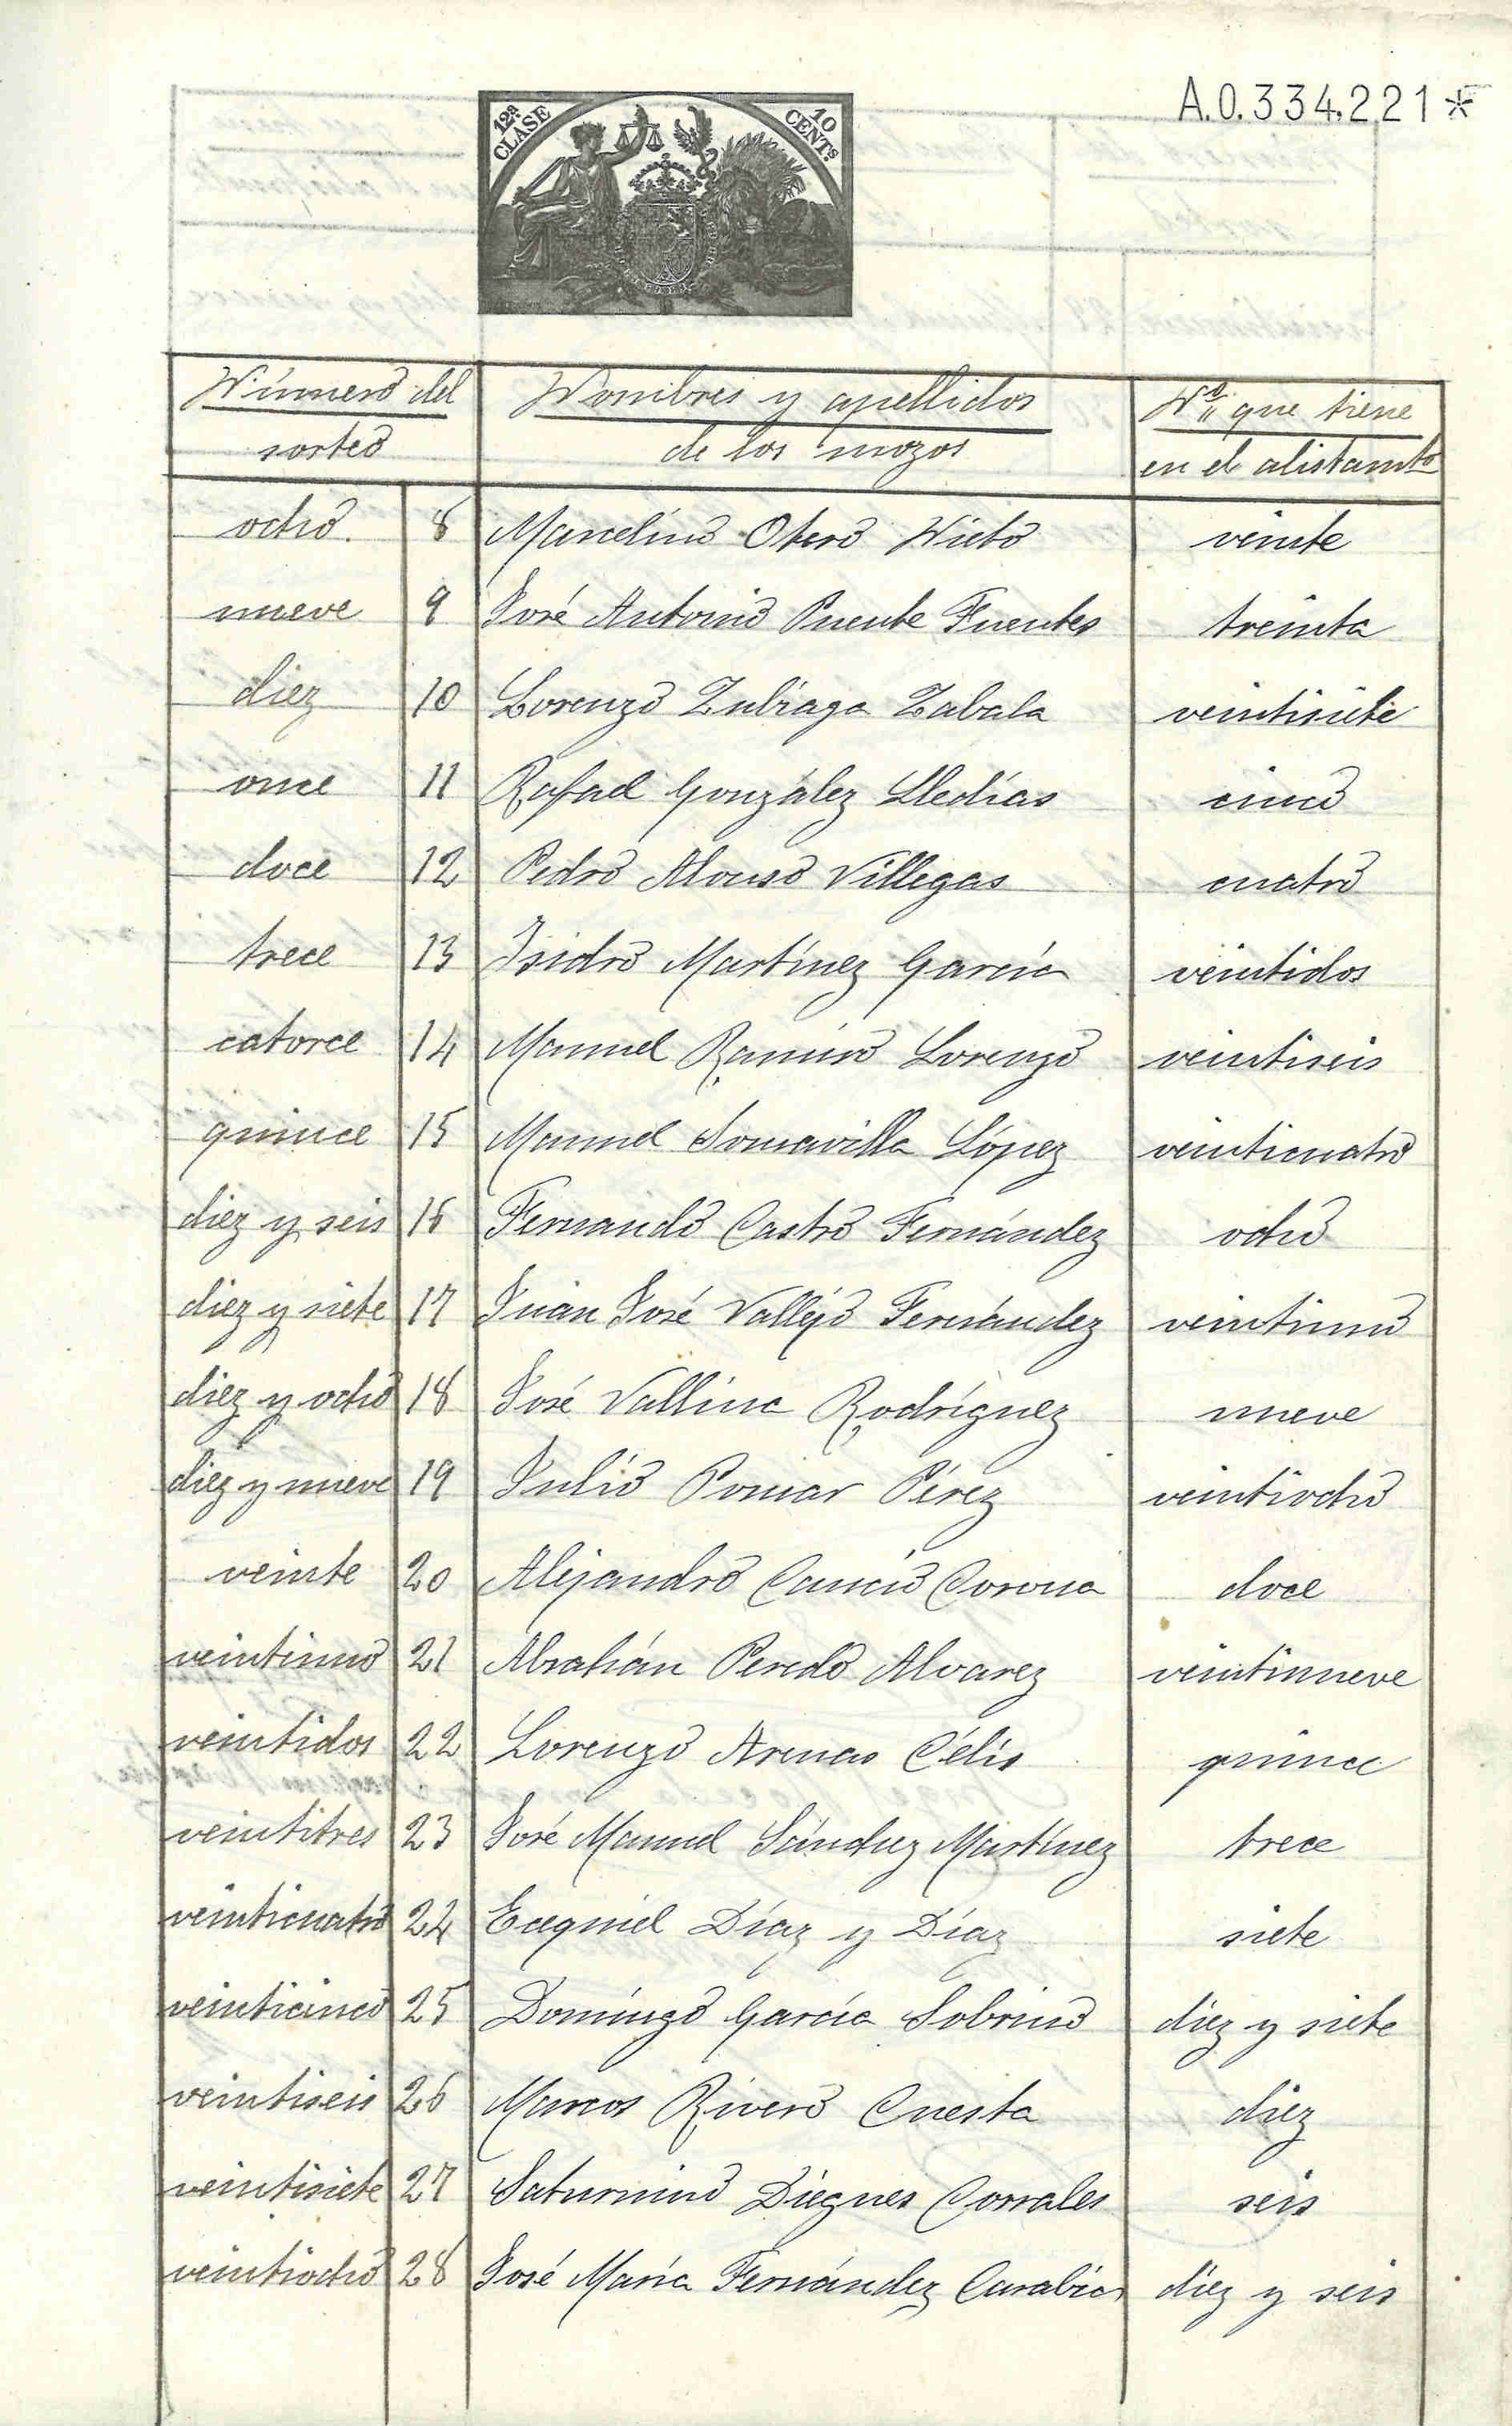 A.0.334.221*
12ª CLASE
10 CENTs
Número del sorteo | Nombres y apellidos de los mozos | Nº que tiene en el alistamto
ocho. | 8 | Marcelino Otero Nieto | veinte
nueve | 9 | José Antonio Puente Fuentes | treinta
diez | 10 | Lorenzo Zubiaga Zabala | veintisiete
once | 11 | Rafael González Lledías | cinco
doce | 12 | Pedro Alonso Villegas | cuatro
trece | 13 | Isidro Martínez García | veintidos
catorce | 14 | Manuel Ramiro Lorenzo | veintiseis
quince | 15 | Manuel Somavilla López | veinticuatro
diez y seis | 16 | Fernando Castro Fernández | ocho
diez y siete | 17 | Juan José Vallejo Fernández | veintiuno
diez y ocho | 18 | José Vallina Rodríguez | nueve
diez y nueve | 19 | Julio Pomar Pérez | veintiocho
veinte | 20 | Alejandro Cancio Corona | doce
veintiuno | 21 | Abrahán Peredo Alvarez | veintinueve
veintidos | 22 | Lorenzo Arenas Célis | quince
veintitres | 23 | José Manuel Sánchez Martínez | trece
veinticuatro | 24 | Ecequiel Díaz y Díaz | siete
veinticinco | 25 | Domingo García Sobrino | diez y siete
veintiseis | 26 | Marcos Rivero Cuesta | diez
veintisiete | 27 | Saturnino Diegues Corrales | seis
veintiocho | 28 | José María Fernández Carabias | diez y seis